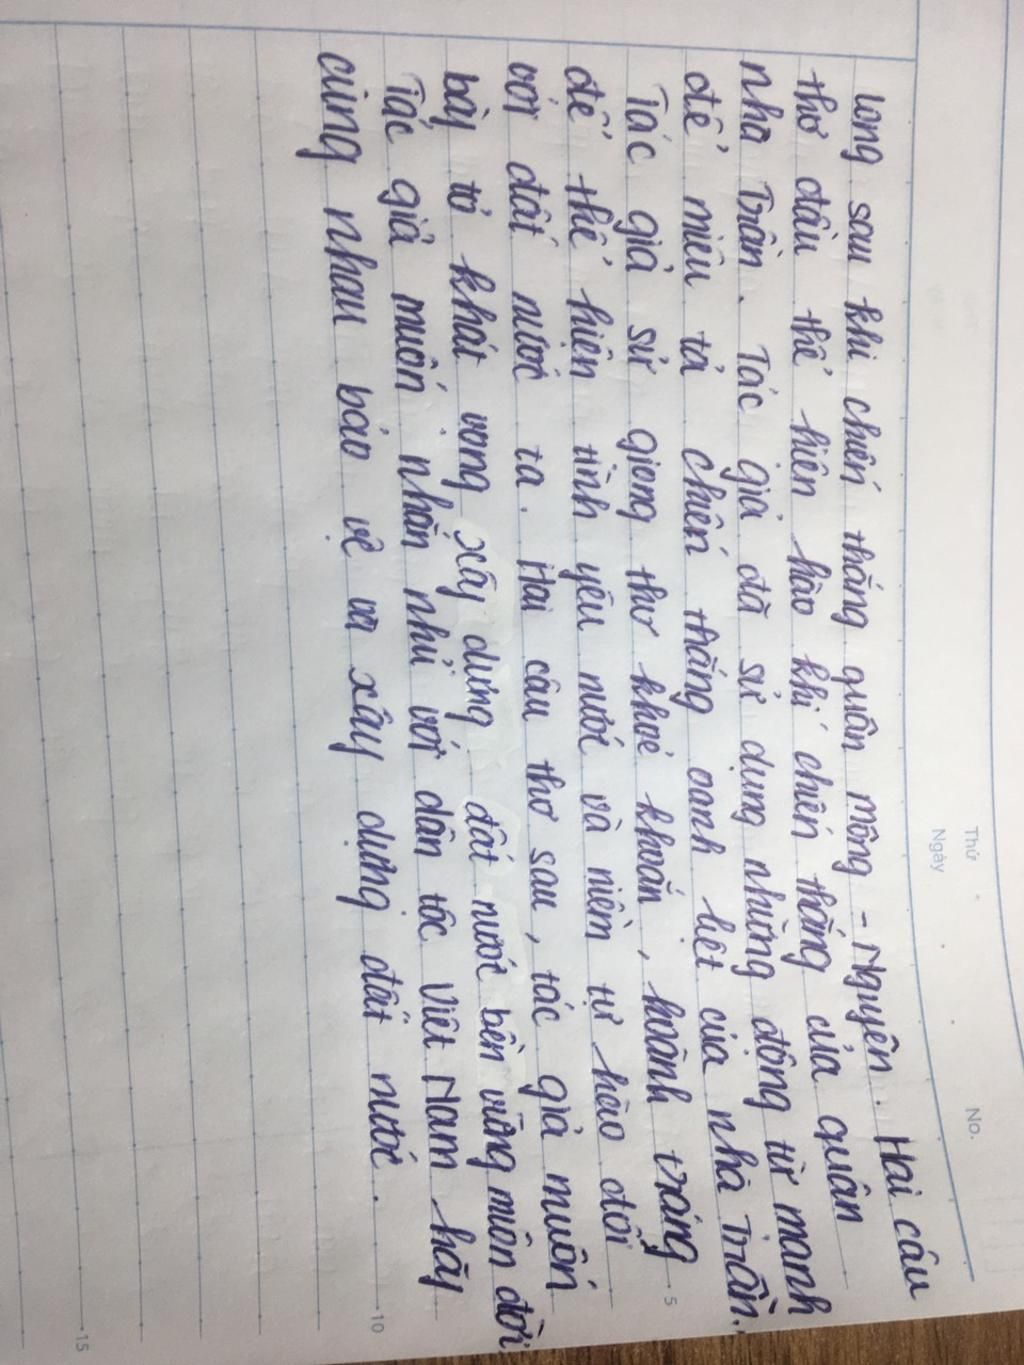 Thứ
Ngày
No.
long sau khi chiến thắng quân Mông - Nguyên. Hai câu
thơ đầu thể hiện hào khí chiến thắng của quân
nhà Trần. Tác giả đã sử dụng những động từ mạnh
để miêu tả chiến thắng oanh liệt của nhà Trần.
Tác giả sử giọng thơ khoẻ khoắn, hoành tráng
để thể hiện tình yêu nước và niềm tự hào đối
với đất nước ta. Hai câu thơ sau, tác giả muốn
bày tỏ khát vọng xây dựng đất nước bền vững muôn đời
Tác giả muốn nhắn nhủ với dân tộc Việt Nam hãy
cùng nhau bảo vệ và xây dựng đất nước.
5
10
15